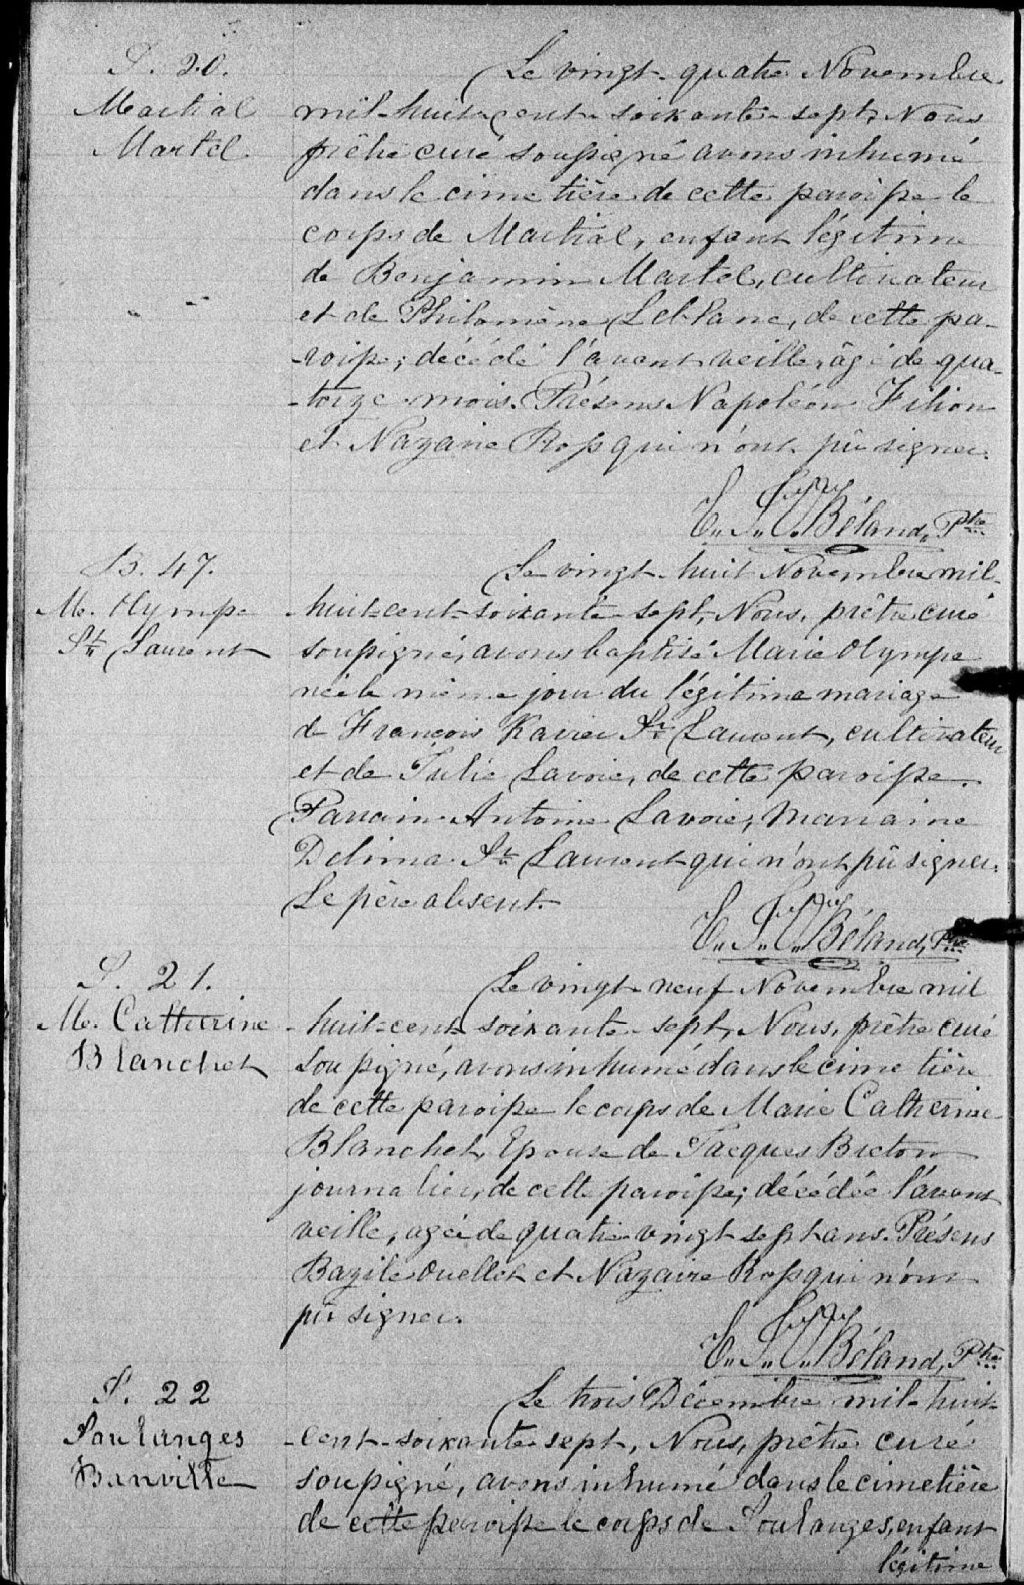 S. 20.
Martial
Martel.
Le vingt-quatre Novembre
mil-huit-cent-soixante-sept, Nous
prêtre curé soussigné avons inhumé
dans le cimetière de cette paroisse le
corps de Martial, enfant légitime
de Benjamin Martel, cultivateur
et de Philomène Leblanc, de cette pa-
-roisse; décédé l'avant veille, âgé de qua-
-torze mois. Présens Napoléon Filion
et Nazaire Ross qui n'ont pû signer.
Béland, Ptre
B. 47.
M. Olympe
St Laurent
Le vingt-huit Novembre mil-
huit-cent-soixante-sept, Nous, prêtre curé
soussigné, avons baptisé Marie Olympe
née le même jour du légitime mariage
de François Xavier St Laurent, cultivateur
et de Julie Lavoie, de cette paroisse.
Parrain Antoine Lavoie, Marraine
Delima St Laurent qui n'ont pû signer.
Le père absent.
Béland, Ptre
S. 21.
M. Catherine
Blanchet
Le vingt-neuf Novembre mil
-huit-cent-soixante-sept, Nous, prêtre curé
soussigné, avons inhumé dans le cimetière
de cette paroisse le corps de Marie Catherine
Blanchet, Epouse de Jacques Breton
journalier, de cette paroisse; décédée l'avant
veille, agée de quatre-vingt sept ans. Présens
Bazile Ouellet et Nazaire Ross qui n'ont
pû signer.
Béland, Ptre
S. 22
Soulanges
Banville
Le trois Décembre mil-huit-
-cent-soixante sept, Nous, prêtre curé
soussigné, avons inhumé dans le cimetière
de cette paroisse le corps de Soulanges, enfant
légitime